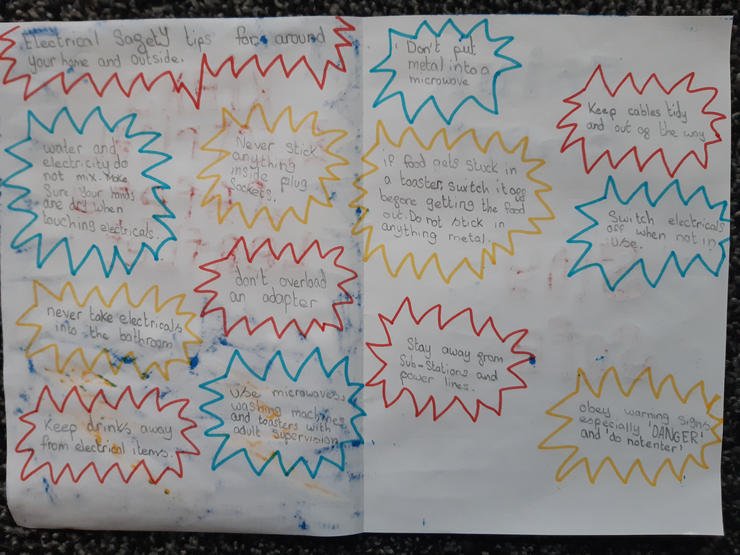 Electrical Sagety tips for around
your home and outside.
water and
electricity do
not mix. Make
Sure your hands
are dry when
touching electricals.
Never stick
anything
inside plug
sockets.
don't overload
an adapter
never take electricals
into the bathroom
Keep drinks away
from electrical items.
Use microwaves
washing machines
and toasters with
adult supervision
Don't put
metal into a
microwave
if food gets stuck in
a toaster, switch it off
before getting the food
out. Do not stick in
anything metal.
Keep cables tidy
and out of the way
Switch electricals
off when not in
use.
Stay away from
Sub-Stations and
power lines.
obey warning signs
especially 'DANGER'
and 'do not enter'